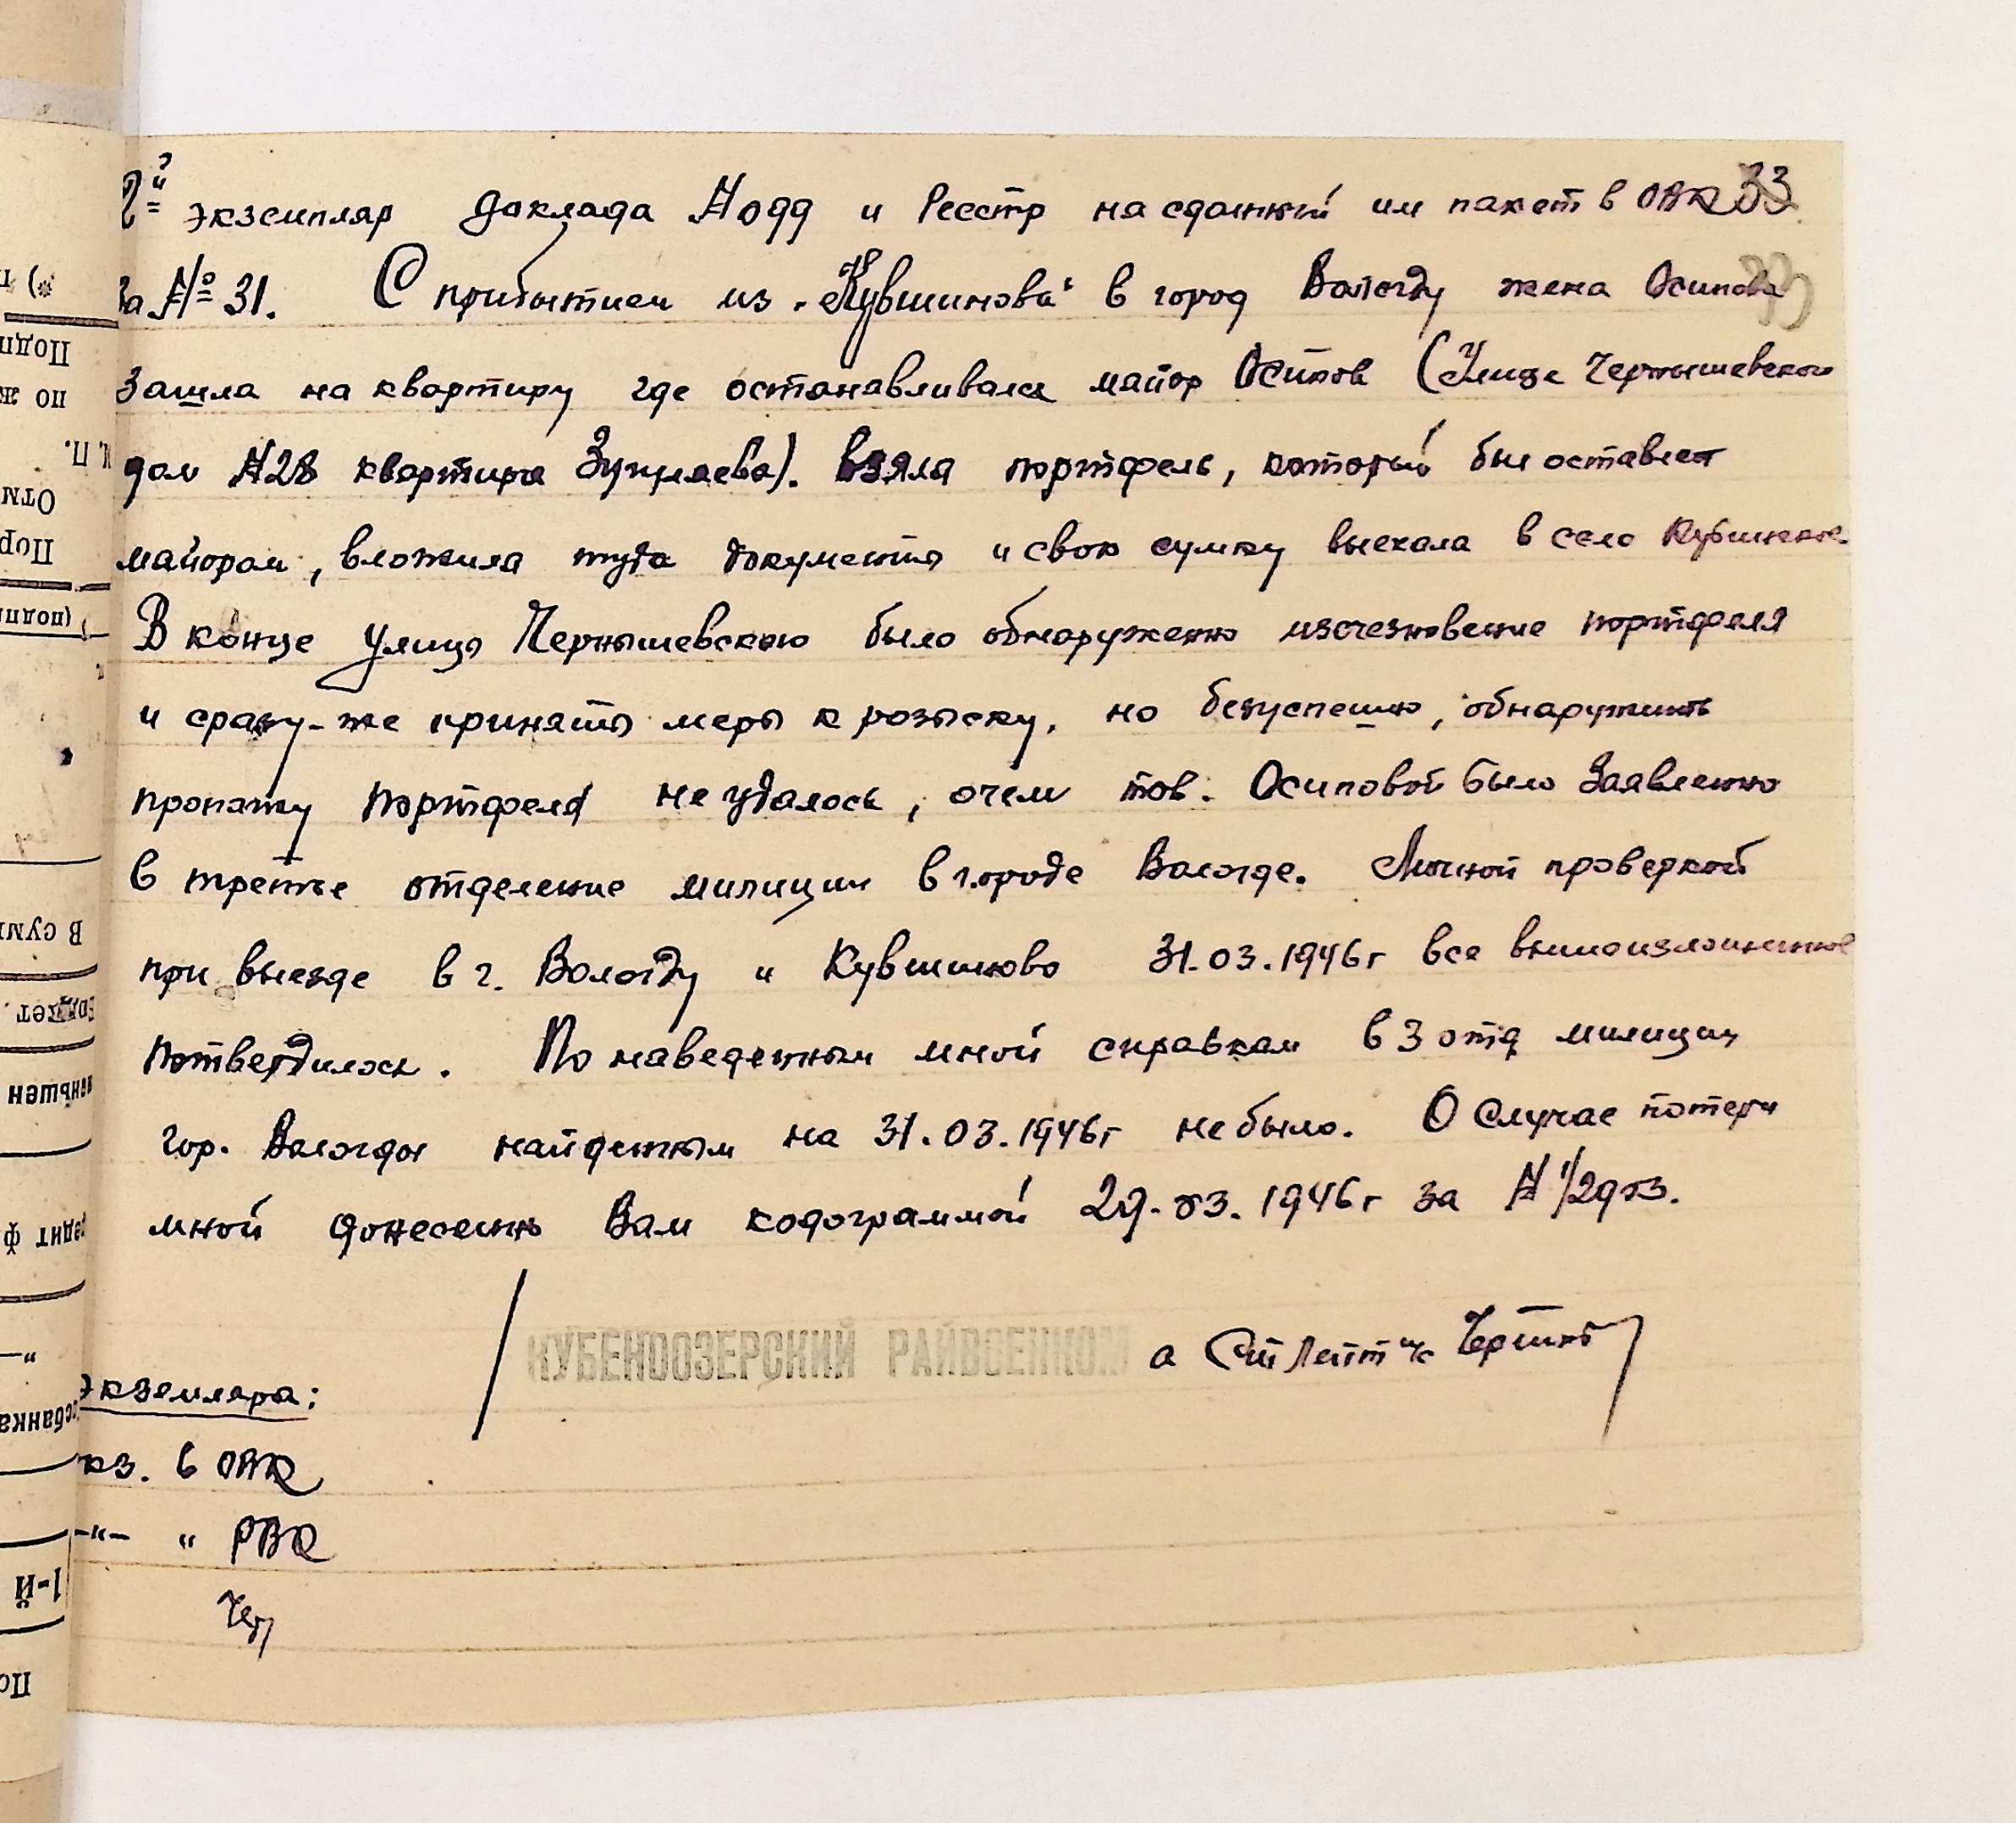 2й экземпляр доклада №099 и Реестр на сданный им пакет в ОВК 33
за № 31. С прибытием из "Кувшинова" в город Вологду жена Осипова
зашла на квартиру где останавливался майор Осипов (Улица Чернышевского
дом №28 квартира). Взяла портфель, который был оставлен
майором, вложила туда документы и свою сумку выехала в село Кубенское.
В конце улицы Чернышевского было обнаруженно изсчезновение портфеля
и сразу-же приняты меры к розыску, но безуспешно, обнаружить
пропажу портфеля не удалось, очем тов. Осиповой было Заявленно
в третье отделение милиции в городе Вологде. Личной проверкой
при выезде в г. Вологду и Кувшиново 31.03.1946г все вышеизложенное
потвердилось. По наведенным мной справкам в 3 отд милиции
гор. Вологды найденным на 31.03.1946г не было. О Случае потери
мной донесенно Вам кодограммой 29.03.1946г за №
КУБЕНООЗЕРСКИЙ РАЙВОЕНКОМ а Ст Лейт
экземляра:
кз. в ОВК
-"- " РВК
*) 
Подп
по ж
И. П.
Отм
Пор
(подпи
В сумм
еньшен
едит ф
сбанка
1-й
По